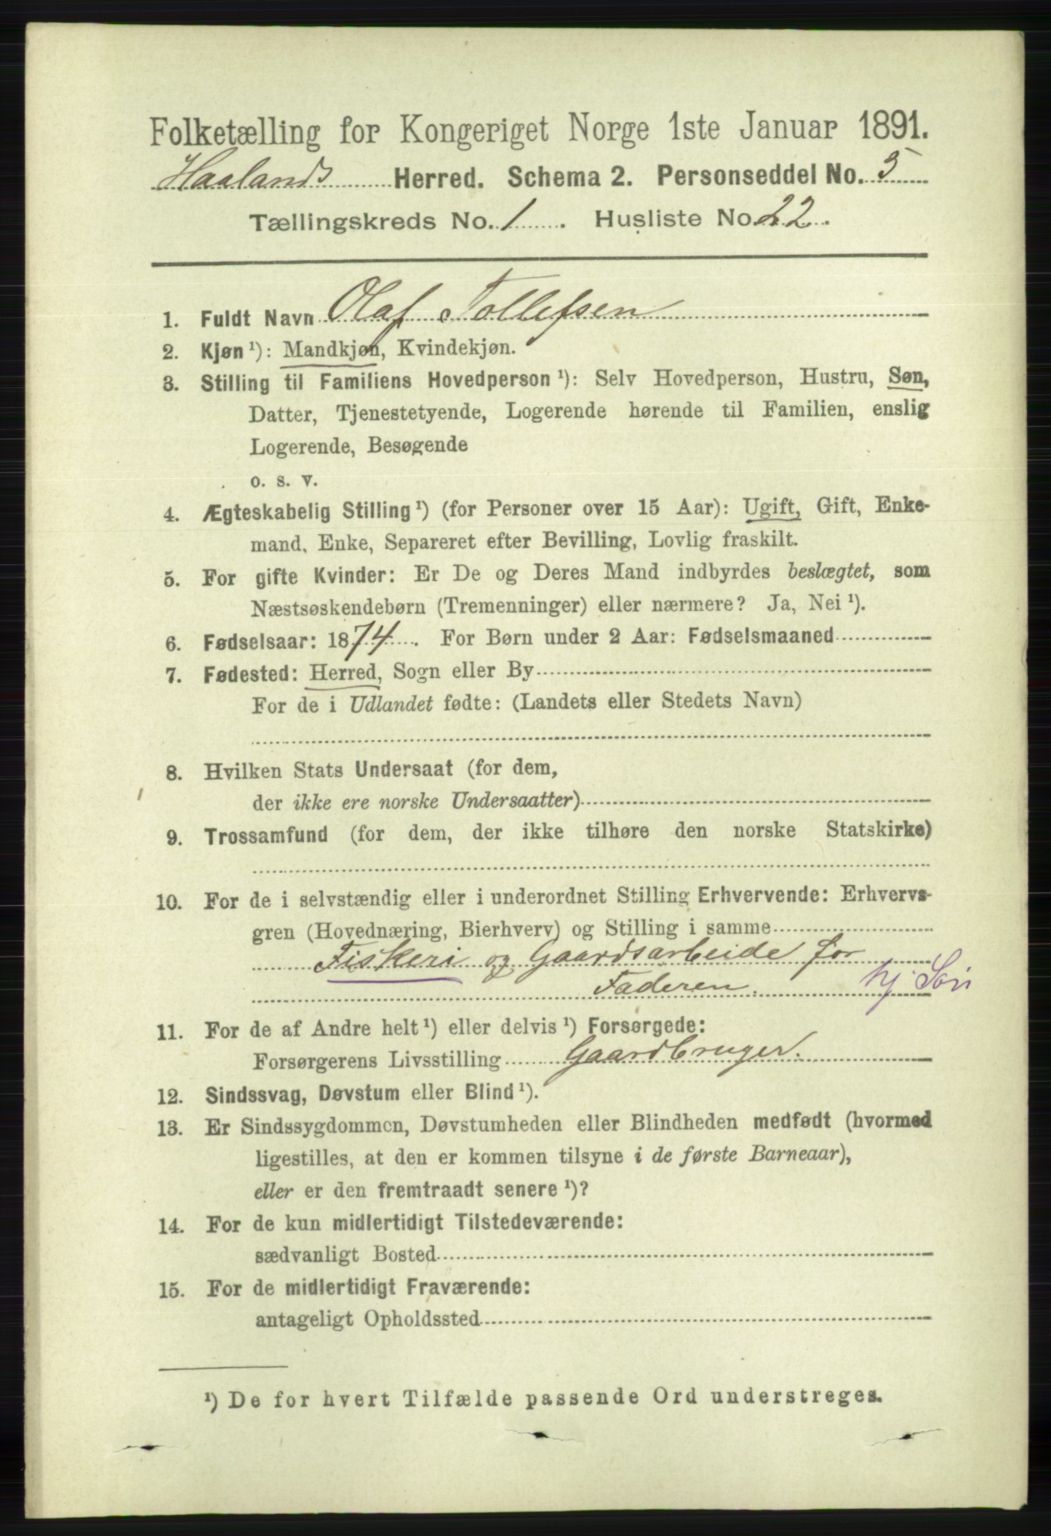 Folketælling for Kongeriget Norge 1ste Januar 1891.
Haalands Herred. Schema 2. Personseddel No. 5
Tællingskreds No. 1 . Husliste No. 22.
1. Fuldt Navn Olaf Tollefsen
2. Kjøn ¹): Mandkjøn, Kvindekjøn.
3. Stilling til Familiens Hovedperson ¹): Selv Hovedperson, Hustru, Søn,
Datter, Tjenestetyende, Logerende hørende til Familien, enslig
Logerende, Besøgende
o. s. v.
4. Ægteskabelig Stilling ¹) (for Personer over 15 Aar): Ugift, Gift, Enke-
mand, Enke, Separeret efter Bevilling, Lovlig fraskilt.
5. For gifte Kvinder: Er De og Deres Mand indbyrdes beslægtet, som
Næstsøskendebørn (Tremenninger) eller nærmere? Ja, Nei ¹).
6. Fødselsaar: 1874 . For Børn under 2 Aar: Fødselsmaaned
7. Fødested: Herred, Sogn eller By
For de i Udlandet fødte: (Landets eller Stedets Navn)
8. Hvilken Stats Undersaat (for dem,
der ikke ere norske Undersaatter)
9. Trossamfund (for dem, der ikke tilhøre den norske Statskirke)
10. For de i selvstændig eller i underordnet Stilling Erhvervende: Erhvervs-
gren (Hovednæring, Bierhverv) og Stilling i samme
Fiskeri og Gaardsarbeide for
Faderen. hj Søn
11. For de af Andre helt ¹) eller delvis ¹) Forsørgede:
Forsørgerens Livsstilling Gaardbruger.
12. Sindssvag, Døvstum eller Blind ¹).
13. Er Sindssygdommen, Døvstumheden eller Blindheden medfødt (hvormed
ligestilles, at den er kommen tilsyne i de første Barneaar),
eller er den fremtraadt senere ¹)?
14. For de kun midlertidigt Tilstedeværende:
sædvanligt Bosted
15. For de midlertidigt Fraværende:
antageligt Opholdssted
¹) De for hvert Tilfælde passende Ord understreges.